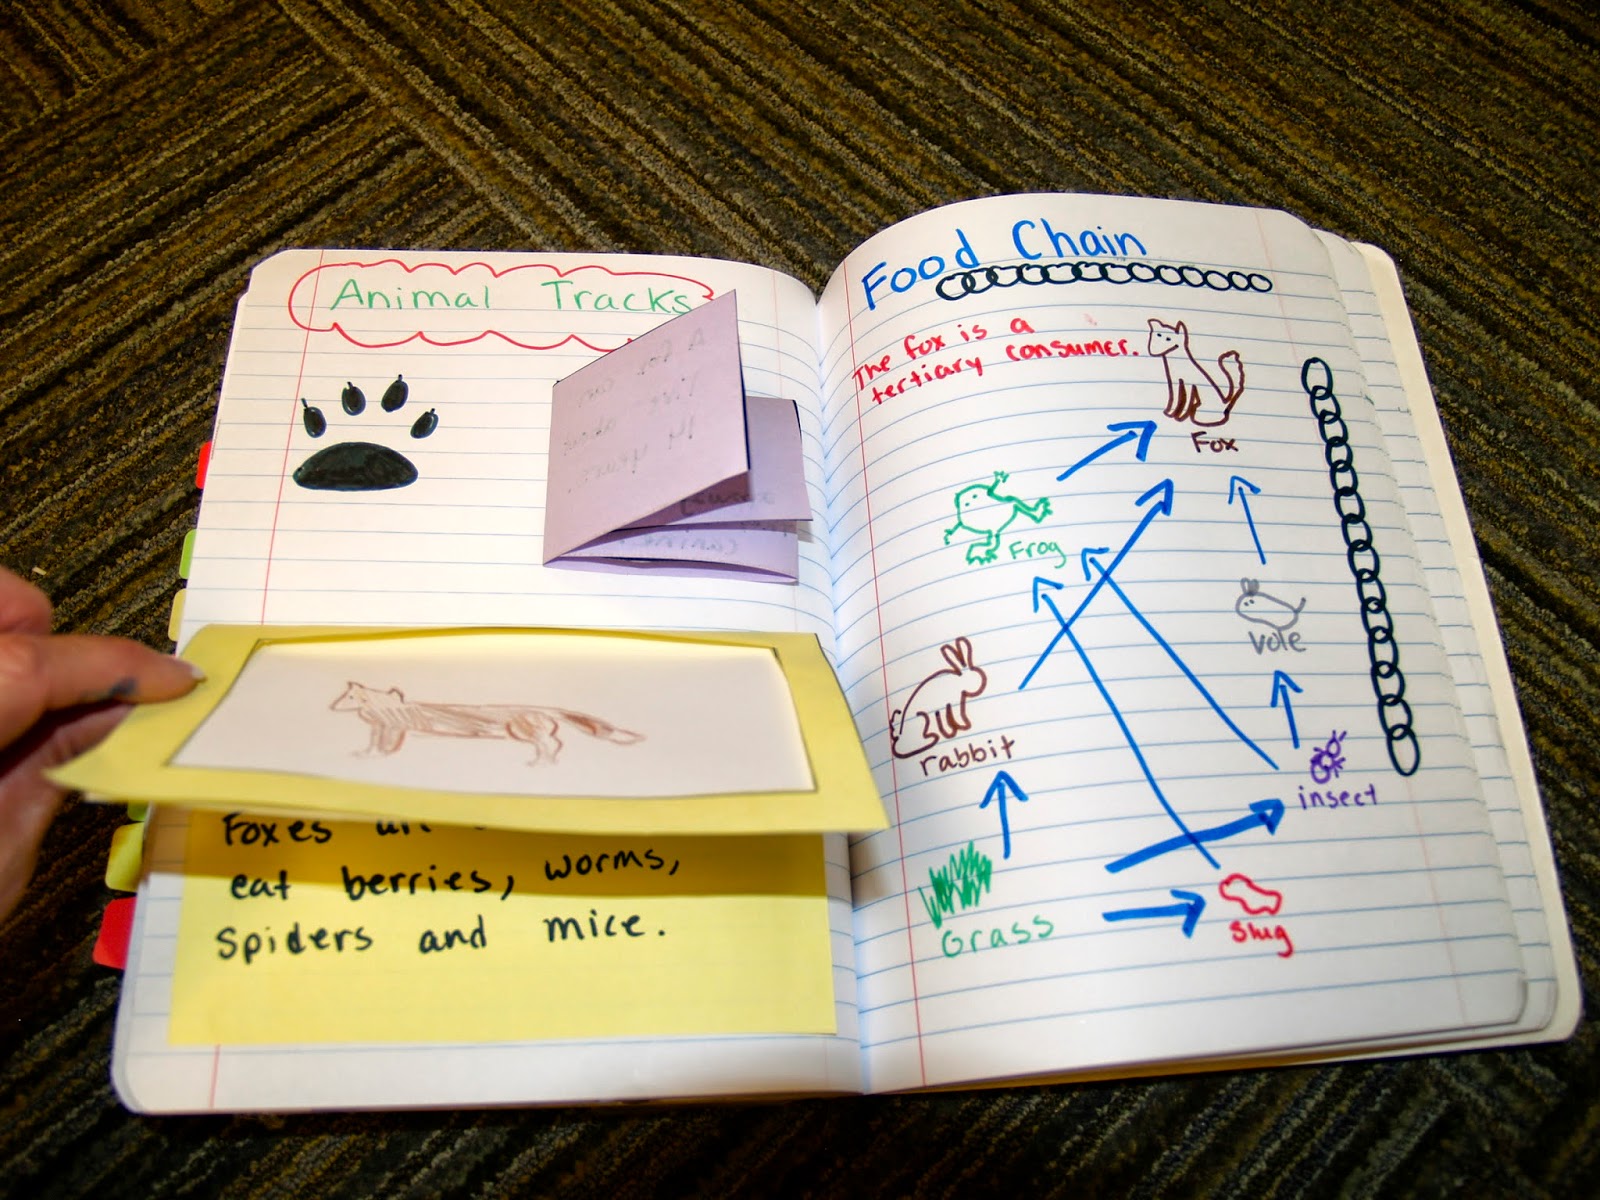 Animal Tracks
A fox can
live
about
14 years.
Foxes
eat berries, worms,
spiders and mice.
Food Chain
The fox is a
tertiary consumer.
Fox
Frog
Vole
rabbit
insect
Grass
Slug